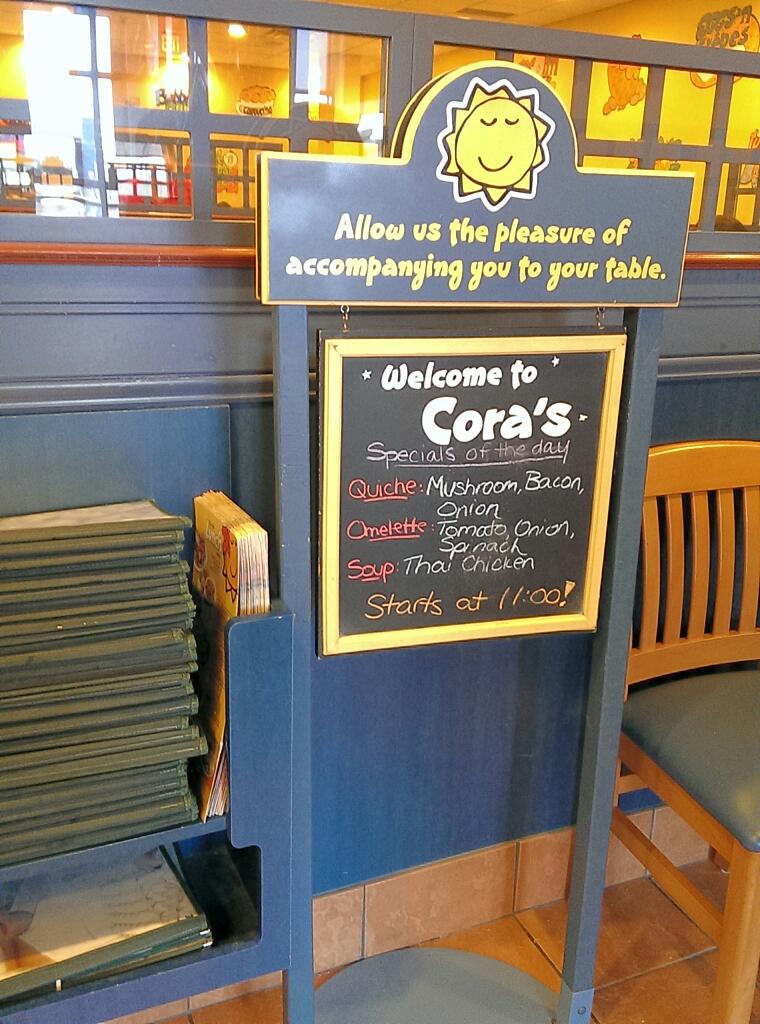 Allow us the pleasure of
accompanying you to your table.
Welcome to
Cora's
Specials of the day
Quiche: Mushroom, Bacon,
Onion
Omelette: Tomato, Onion,
Spinach
Soup: Thai Chicken
Starts at 11:00!